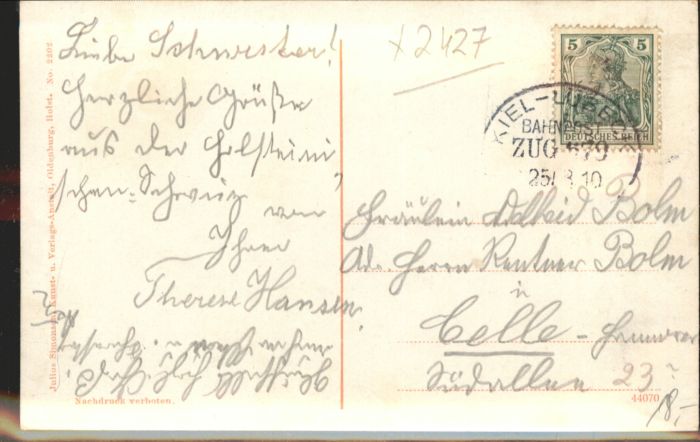 Liebe Schwester!
Herzliche Grüße
aus der Holsteini
schen-Schweiz
von
Ihrer
Therese Hansen.
x 2427
5 5
DEUTSCHES REICH
KIEL-LÜBECK
BAHNPOST
ZUG 879
25/ 8 10
Fräulein Adelheid Bolm
Ad. Herrn Rentner Bolm
in
Celle - Hannover
Südallee 23
8,-
Julius Simonsen, Kunst- u. Verlags-Anstalt, Oldenburg, Holst. No. 2202
Nachdruck verboten.
44070